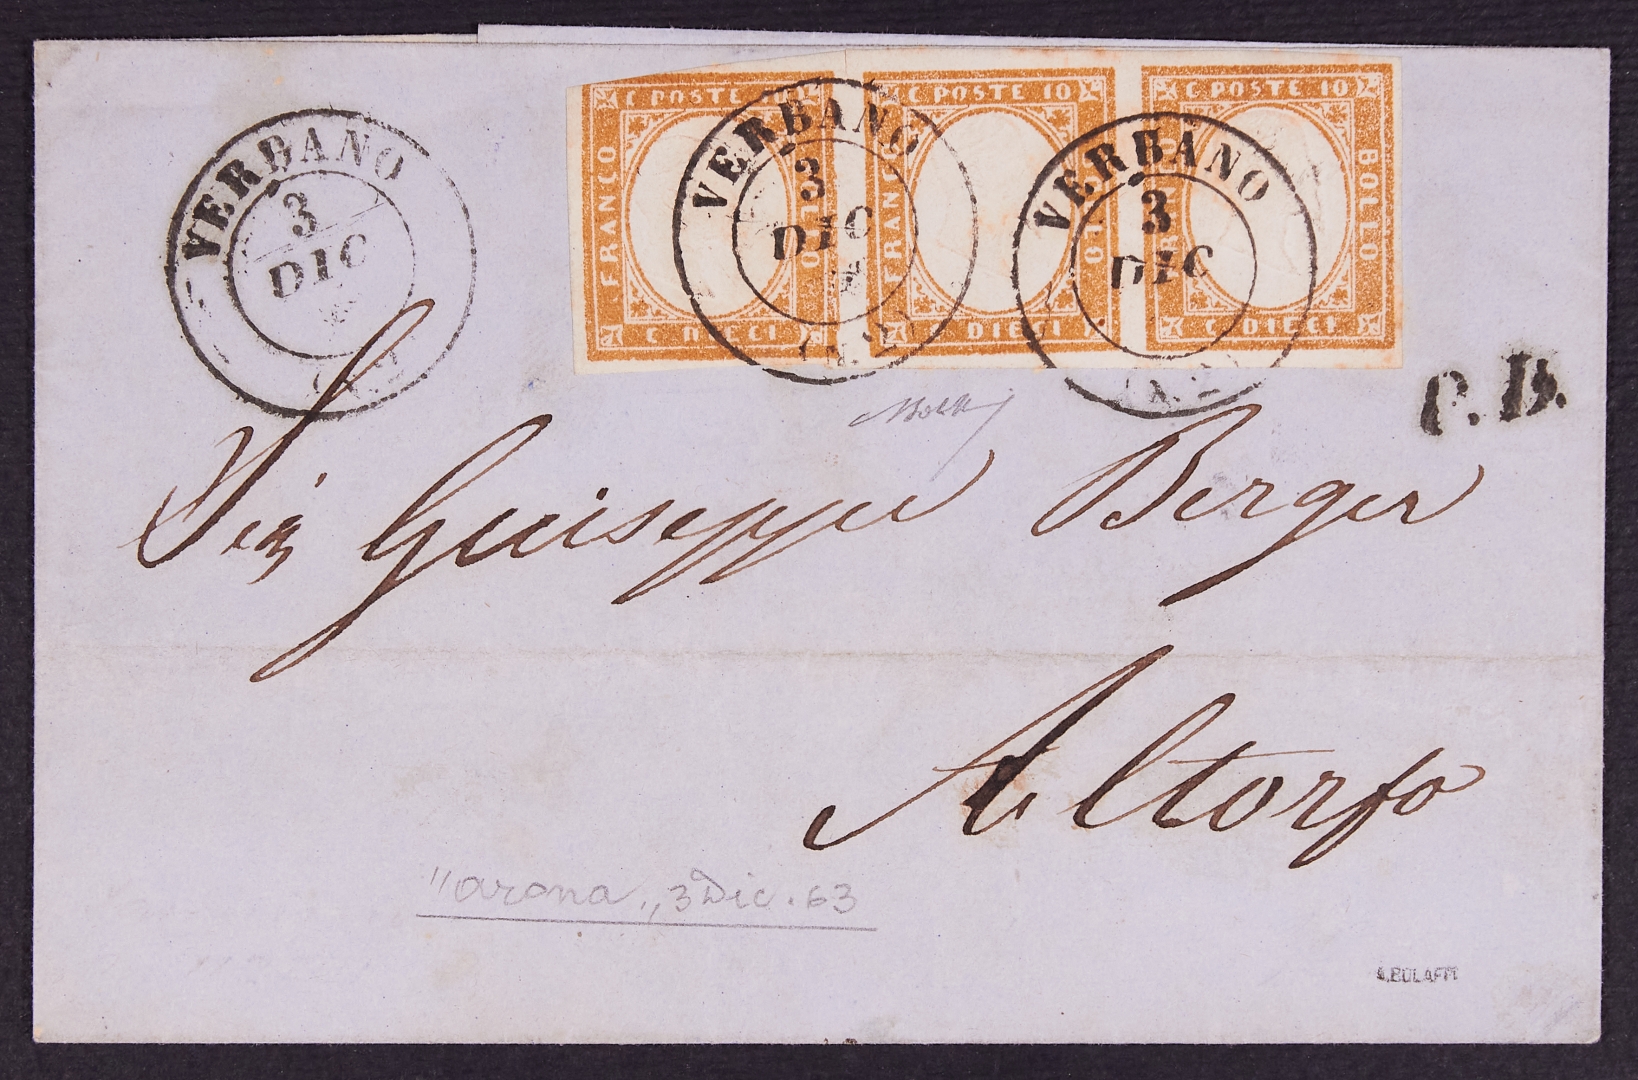 VERBANO
3
DIC
C POSTE 10
FRANCO
C DIECI
VERBANO
3
DIC
(N.2)
C POSTE 10
FRANCO
BOLLO
C DIECI
VERBANO
3
DIC
(N.2)
C POSTE 10
FRANCO
BOLLO
C DIECI
P.D.
Sig Guiseppe Berger
Altorfo
"arona„ 3 Dic. 63
A.BOLAFFI